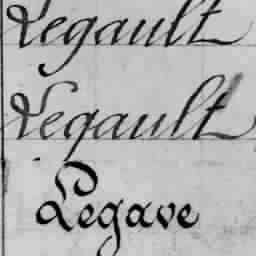 Legault
Legault
Legave